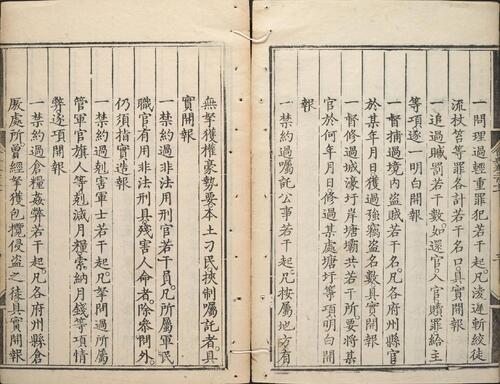 一問理過輕重罪犯若干起凡淩遲斬絞徒
流杖笞等罪各計若干名口具實開報
一追過贓罰若干數如還官入官贖罪給主
等項逐一明白開報
一督捕過境内盜賊若干起凡各府州縣官
於某年月日獲過強竊盜名數具實開報
一督修過城濠圩岸塘壩共若干所要將某
官於何年月日修過某處塘圩等項明白開
報
一禁約過囑託公事若干起凡按屬地方有
無拏獲權豪勢要本土刁民挾制囑託者具
實開報
一禁約過非法用刑官若干員凡所屬軍民
職官有用非法刑具殘害人命者除參問外
仍須指實造報
一禁約過剋害軍士若干起凡拏問過所屬
管軍官旗人等剋減月糧索納月錢等項情
弊逐項開報
一禁約過倉糧姦弊若干起凡各府州縣倉
厫處所曾經拏獲包攬侵盜之徒具實開報